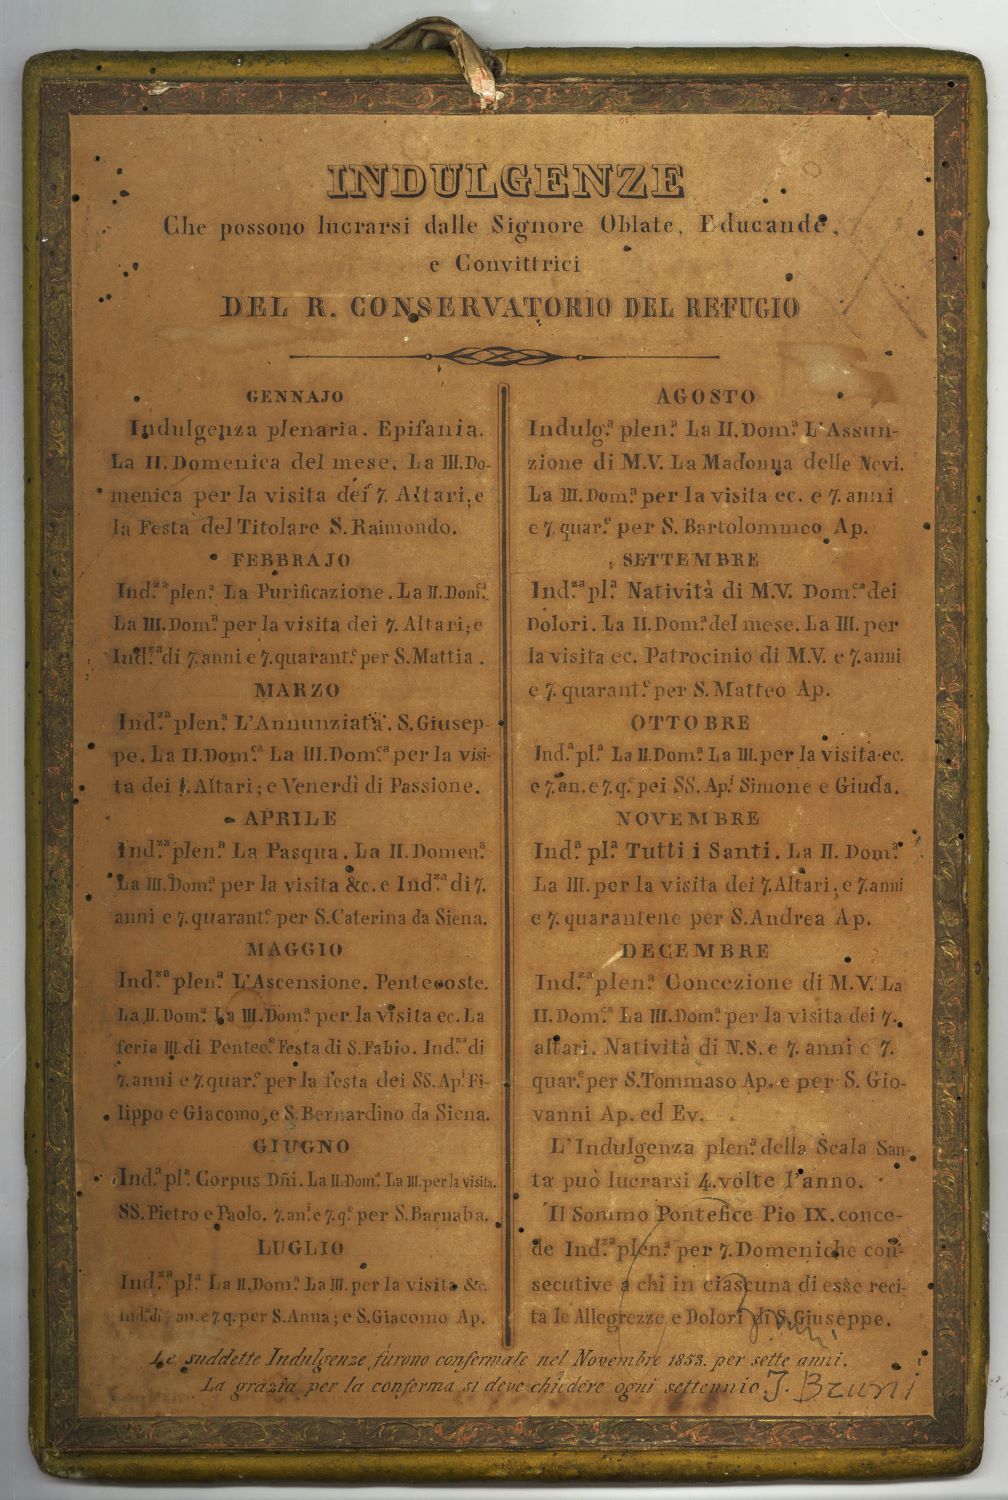 INDULGENZE
Che possono lucrarsi dalle Signore Oblate, Educande,
e Convittrici
DEL R. CONSERVATORIO DEL REFUGIO
GENNAJO
Indulgenza plenaria. Epifania.
La II. Domenica del mese. La III. Do-
menica per la visita dei 7. Altari; e
la Festa del Titolare S. Raimondo.
FEBBRAJO
Ind.za plen.a La Purificazione. La II. Dom.a
La III. Dom.a per la visita dei 7. Altari; e
Ind.za di 7. anni e 7. quarant.e per S. Mattia.
MARZO
Ind.za plen.a L'Annunziata. S. Giusep-
pe. La II. Dom.ca La III. Dom.ca per la visi-
ta dei 7. Altari; e Venerdì di Passione.
APRILE
Ind.za plen.a La Pasqua. La II. Domen.a
La III. Dom.a per la visita &c. e Ind.za di 7.
anni e 7. quarant.e per S. Caterina da Siena.
MAGGIO
Ind.za plen.a L'Ascensione. Pentecoste.
La II. Dom.a La III. Dom.a per la visita ec. La
feria III. di Pentec.e Festa di S. Fabio. Ind.za di
7. anni e 7. quar.e per la festa dei SS. Ap.i Fi-
lippo e Giacomo, e S. Bernardino da Siena.
GIUGNO
Ind.a pl.a Corpus Dñi. La II. Dom.a La III. per la visita.
SS. Pietro e Paolo. 7. an.i e 7. q.e per S. Barnaba.
LUGLIO
Ind.za pl.a La II. Dom.a La III. per la visita &c.
Ind.a di 7 an. e 7. q. per S. Anna; e S. Giacomo Ap.
AGOSTO
Indulg.a plen.a La II. Dom.a L'Assun-
zione di M.V. La Madonna delle Nevi.
La III. Dom.a per la visita ec. e 7. anni
e 7. quar.e per S. Bartolommeo Ap.
SETTEMBRE
Ind.za pl.a Natività di M.V. Dom.ca dei
Dolori. La II. Dom.a del mese. La III. per
la visita ec. Patrocinio di M.V. e 7. anni
e 7. quarant.e per S. Matteo Ap.
OTTOBRE
Ind.a pl.a La II. Dom.a La III. per la visita ec.
e 7. an. e 7. q.e pei SS. Ap.i Simone e Giuda.
NOVEMBRE
Ind.a pl.a Tutti i Santi. La II. Dom.a
La III. per la visita dei 7. Altari; e 7. anni
e 7. quarantene per S. Andrea Ap.
DECEMBRE
Ind.za plen.a Concezione di M.V. La
II. Dom.ca La III. Dom.a per la visita dei 7.
altari. Natività di N.S. e 7. anni e 7.
quar.e per S. Tommaso Ap. e per S. Gio-
vanni Ap. ed Ev.
L'Indulgenza plen.a della Scala San-
ta può lucrarsi 4. volte l'anno.
Il Sommo Pontefice Pio IX. conce-
de Ind.za plen.a per 7. Domeniche con-
secutive a chi in ciascuna di esse reci-
ta le Allegrezze e Dolori di S. Giuseppe.
Le suddette Indulgenze furono confermate nel Novembre 1853. per sette anni.
La grazia per la conferma si deve chiedere ogni settennio. J. Bruni